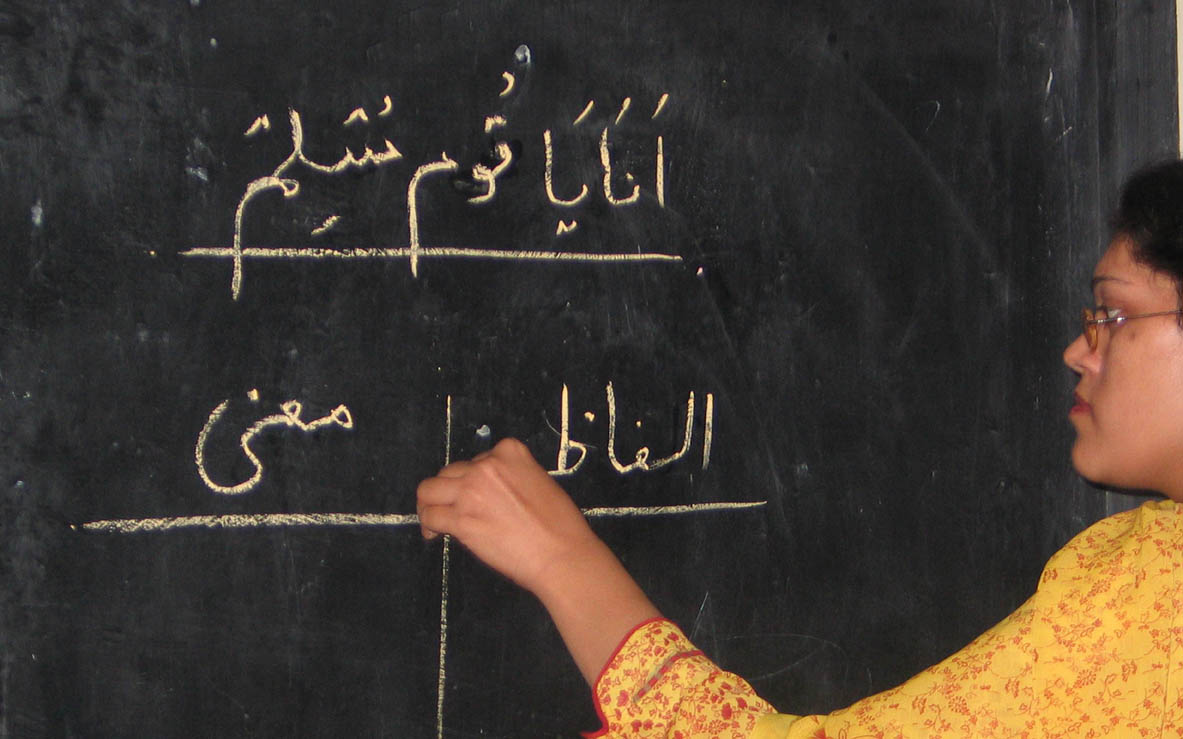 اَنَایَا قُوم مُسْلِمْ
الفاظ معنی